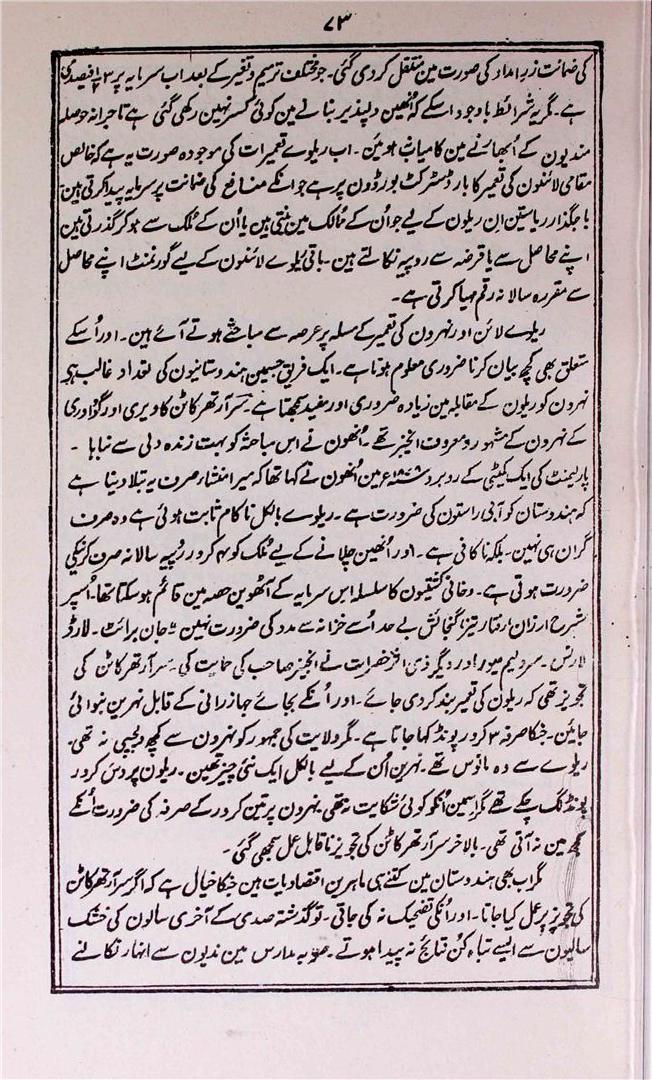 ۷۳
کی ضمانت زر امداد کی صورت مین منتقل کر دی گئی۔ جو مختلف ترمیم و تغیر کے بعد اب سرمایہ پر فیصدی
ہے۔ مگر یہ شرائط باوجود اسکے کہ اُنھین دلپذیر بنانے مین کوئی کسر نہین رکھی گئی ہے تاجرانہ حوصلہ
مندیون کے اُبھارنے مین کامیاب نہ ہوئین۔ اب ریلوے تعمیرات کی موجودہ صورت یہ ہے کہ خالص
مقامی لائنون کی تعمیر کا بار ڈسٹرکٹ بورڈون پر ہے جو انکے منافع کی ضمانت پر سرمایہ پیدا کرتی ہین
باجگذار ریاستین ان ریلون کے لیے جو اُن کے مُمالک مین بنتی ہین یا اُن کے مُلک سے ہو کر گذرتی ہین
اپنے محاصل سے یا قرضہ سے روپیہ نکالتے ہین۔ باقی ریلوے لائنون کے لیے گورنمنٹ اپنے محاصل
سے مقررہ سالانہ رقم مہیا کرتی ہے۔
ریلوے لائن اور نہرون کی تعمیر کے مسلہ پر عرصہ سے مباحثے ہوتے آئے ہین۔ اور اُسکے
متعلق بھی کچھ بیان کرنا ضروری معلوم ہوتا ہے۔ ایک فریق جسمین ہندوستانیون کی تعداد غالب ہے
نہرون کو ریلون کے مقابلہ مین زیادہ ضروری اور مفید سمجھتا ہے۔ سر آرتھر کاٹن کاویری اور گوداوری
کے نہرون کے مشہور و معروف انجنیر تھے۔ اُنھون نے اس مباحثہ کو بہت زندہ دلی سے نباہا۔
پارلیمنٹ کی ایک کمیٹی کے روبرو مین اُنھون نے کہا تھا کہ میرا منشاء صرف یہ بتلا دینا ہے
کہ ہندوستان کو آبی راستون کی ضرورت ہے۔ ریلوے بالکل ناکام ثابت ہوئی ہے وہ صرف
گران ہی نہین۔ بلکہ ناکافی ہے۔ اور اُنھین چلانے کے لیے مُلک کو ۴ کرور روپیہ سالانہ صرف کرنیکی
ضرورت ہوتی ہے۔ دخانی کشتیون کا سلسلہ اس سرمایہ کے آٹھوین حصہ مین قائم ہو سکتا تھا۔ اُسپر
شرح ارزان رفتار تیز، گنجائش بے حد اُسے خزانہ سے مدد کی ضرورت نہین۔ جان برائٹ۔ لارڈ
لارنس۔ سر ولیم میور اور دیگر ذی اثر حضرات نے انجنیر صاحب کی حمایت کی۔ سر آرتھر کاٹن کی
تجویز تھی کہ ریلون کی تعمیر بند کر دی جائے۔ اور اُنکے بجائے جہازرانی کے قابل نہرین بنوائی
جائین۔ جنکا صرفہ ۳ کرور پونڈ کہا جاتا ہے۔ مگر ولایت کی جمہور کو نہرون سے کچھ دلچسپی نہ تھی۔
ریلوے سے وہ مانوس تھے۔ نہرین اُن کے لیے بالکل ایک نئی چیز تھین۔ ریلون پر دس کرور
پونڈ لگ چکے تھے مگر اسمین اُنکو کوئی شکایت نہ تھی۔ نہرون پر تین کرور کے صرفہ کی ضرورت اُنکے
سمجھ مین نہ آتی تھی۔ بالآخر سر آرتھر کاٹن کی تجویز ناقابل عمل سمجھی گئی۔
مگر اب بھی ہندوستان مین کتنے ہی ماہرین اقتصادیات ہین جنکا خیال ہے کہ اگر سر آرتھر کاٹن
کی تجویز پر عمل کیا جاتا۔ اور اُنکی تضحیک نہ کی جاتی۔ تو گذشتہ صدی کے آخری سالون کی خشک
سالیون سے ایسے تباہ کُن نتائج نہ پیدا ہوتے۔ صوبہ مدارس مین ندیون سے انہار نکالنے